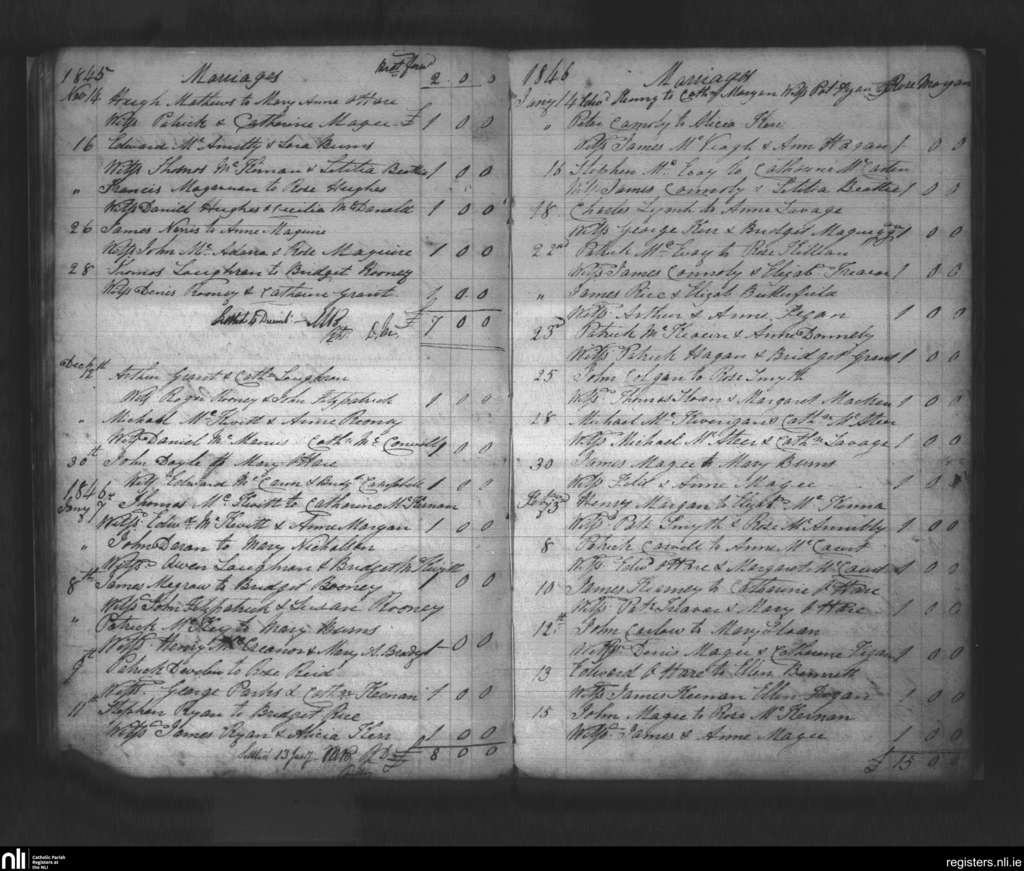 1845 Marriages 2 0 0
Nov 14 Hugh Mathews to Mary Anne O Hare
Witss Patrick & Catherine Magee £ 1 0 0
16 Edward Mc &
Witss Thomas Mc Kernan & Letitia 1 0 0
" Francis to Rose Hughes
Witss Daniel Hughes & Cecilia McDonald 1 0 0
26 James to Anne Maguire
Witss John Mc & Rose Maguire 1 0 0
28 Thomas Loughran to Bridget Rooney
Witss Denis Rooney & Catherine Grant 0 0
£ 7 0 0
Decb 12th Arthur Grant & Cathn Loughran
Witss Roger Rooney & John Fitzpatrick 1 0 0
" Michael Mc Kevitt & Anne Rooney
Witss Daniel Mc Cathn Mc 1 0 0
30th John Doyle to Mary O Hare
Witss Edward Mc Cann & Campbell 1 0 0
1846
Jany 7 Thomas Mc Kevitt to Catharine Mc Kernan
Witss Edwd Mc Kevitt & Anne Morgan 1 0 0
" John Doran to Mary Nicholson
Witss Owen Loughran & Bridget 1 0 0
8th James Megrow to Bridget Rooney
Witss John Fitzpatrick & Susan Rooney
" Patrick Mc to Mary Burns
Witss Henry & Mary A. 1 0 0
9th Patrick to Rose Reid
Witss George Parks & Cathn Keenan 1 0 0
11th Stephen Ryan to Bridget Rice
Witss James Ryan & Alicia Kerr 1 0 0
13 Jany £ 8 0 0
1846 Marriages
Jany 14 Edwd to Cathn Morgan Witss Ryan & Rose Morgan
" Peter to Alicia Kerr
Witss James Mc Veagh & Ann Hagan 1 0 0
16 Stephen Mc Evoy to Catherine Mc
Witss James Connoly & Letitia 1 0 0
18 Charles Lynch to Anne Savage
Witss George Kerr & Bridget 1 0 0
22nd Patrick Mc Evoy to Rose Killen
Witss James Connoly & Elizab 1 0 0
" James Rice & Elizab Butterfield
Witss Arthur & Anne Fegan 1 0 0
23d Patrick Mc & Anne Donnely
Witss Patrick Hagan & Bridget Grant 1 0 0
25 John Colgan to Rose Smyth
Witss Thomas & Margaret Macken 1 0 0
28 Michael Mc & Cathn Mc Steer
Witss Michael Mc Steer & Cathn Savage 1 0 0
30 James Magee to Mary Burns
Witss Felix & Anne Magee 1 0
Henry Morgan to Elizab Mc Kenna
Witss Smyth & Rose Mc 1 0 0
8 Patrick to Anne Mc Court
Witss Edwd O Hare & Margaret Mc Court 1 0 0
10 James Kearney to Catharine O Hare
Witss & Mary O Hare 1 0 0
12th John Carlow to Mary Sloan
Witss Denis Magee & Catherine Fegan 1 0 0
13 Edward O Hare to Ellen Bennett
Witss James Keenan Ellen Hogan 1 0 0
15 John Magee to Rose Mc Kernan
Witss James & Anne Magee 1 0 0
£ 15 0 0
nli Catholic Parish
Registers at
the NLI
registers.nli.ie